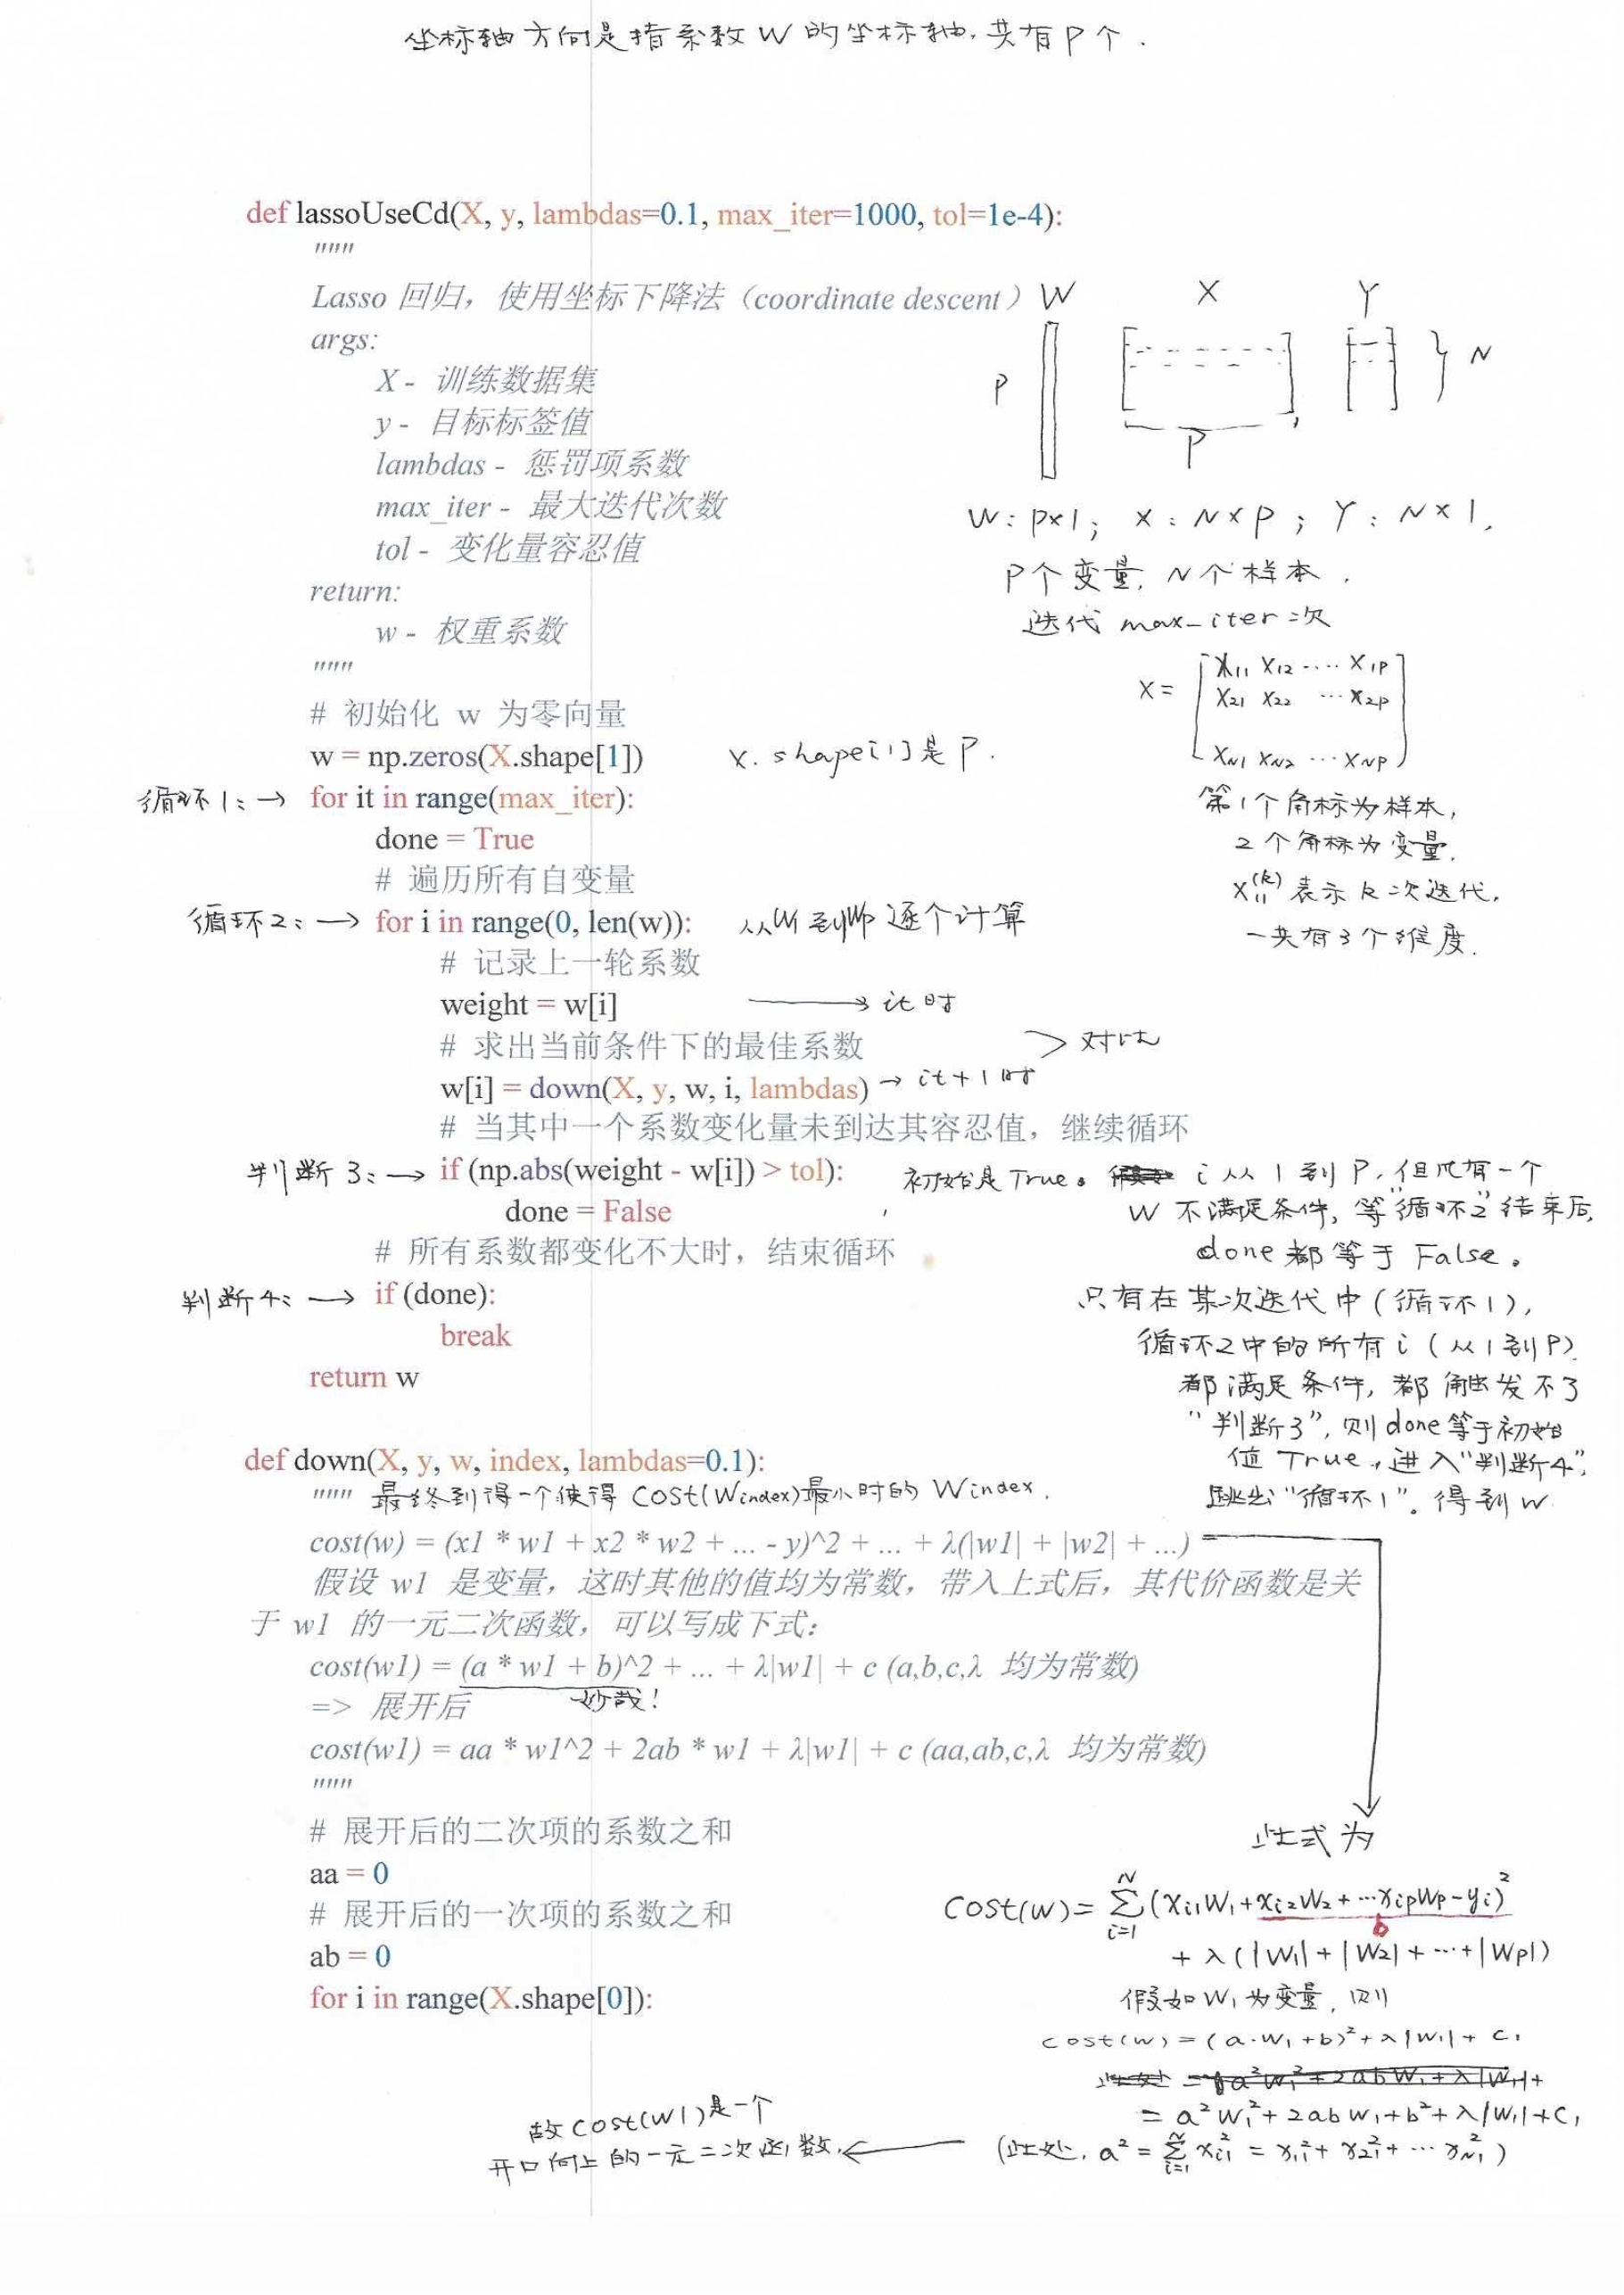 坐标轴方向是指系数W的坐标轴，共有P个．
def lassoUseCd(X, y, lambdas=0.1, max_iter=1000, tol=1e-4):
"""
Lasso 回归，使用坐标下降法（coordinate descent）
W X Y
args:
X - 训练数据集
P
N
y - 目标标签值
P
lambdas - 惩罚项系数
max_iter - 最大迭代次数
W: P×1; X: N×P; Y: N×1.
tol - 变化量容忍值
P个变量，N个样本．
return:
迭代 max_iter次
w - 权重系数
"""
X = [X11 X12 ···· X1P
X21 X22 ··· X2P
XN1 XN2 ··· XNP]
# 初始化 w 为零向量
w = np.zeros(X.shape[1])
X.shape[1]是P．
循环1: → for it in range(max_iter):
第1个角标为样本，
done = True
2个角标为变量．
# 遍历所有自变量
X11^(k) 表示k次迭代．
循环2: → for i in range(0, len(w)):
从W1到Wp逐个计算
一共有3个维度．
# 记录上一轮系数
weight = w[i] → it时
# 求出当前条件下的最佳系数
> 对比
w[i] = down(X, y, w, i, lambdas) → it+1时
# 当其中一个系数变化量未到达其容忍值，继续循环
判断3: → if (np.abs(weight - w[i]) > tol):
初始是True。 i从1到P，但凡有一个
done = False
W不满足条件，等"循环2"结束后，
# 所有系数都变化不大时，结束循环
done都等于False。
判断4: → if (done):
只有在某次迭代中(循环1)，
break
循环2中的所有i(从1到P)
return w
都满足条件，都触发不了
"判断3"，则done等于初始
def down(X, y, w, index, lambdas=0.1):
值True，进入"判断4"，
""" 最终到得一个使得COST(Windex)最小时的Windex．
跳出"循环1"。得到W
cost(w) = (x1 * w1 + x2 * w2 + ... - y)^2 + ... + λ(|w1| + |w2| + ...)
假设 w1 是变量，这时其他的值均为常数，带入上式后，其代价函数是关
于 w1 的一元二次函数，可以写成下式：
cost(w1) = (a * w1 + b)^2 + ... + λ|w1| + c (a,b,c,λ 均为常数)
妙哉！
=> 展开后
cost(w1) = aa * w1^2 + 2ab * w1 + λ|w1| + c (aa,ab,c,λ 均为常数)
"""
# 展开后的二次项的系数之和
此式为
aa = 0
COST(W) = Σ_{i=1}^{N} (Xi1W1+Xi2W2+···XipWp-yi)²
# 展开后的一次项的系数之和
b
ab = 0
+ λ(|W1|+|W2|+···+|Wp|)
for i in range(X.shape[0]):
假如W1为变量，则
cost(w) = (a·W1+b)²+λ|W1|+C1
此处 = a²W1²+2abW1+λ|W1|+
= a²W1²+2abW1+b²+λ|W1|+C1
故COST(W1)是一个
开口向上的一元二次函数． ←
(此处，a² = Σ_{i=1}^{N} Xi1² = X11²+X21²+···XN1²)